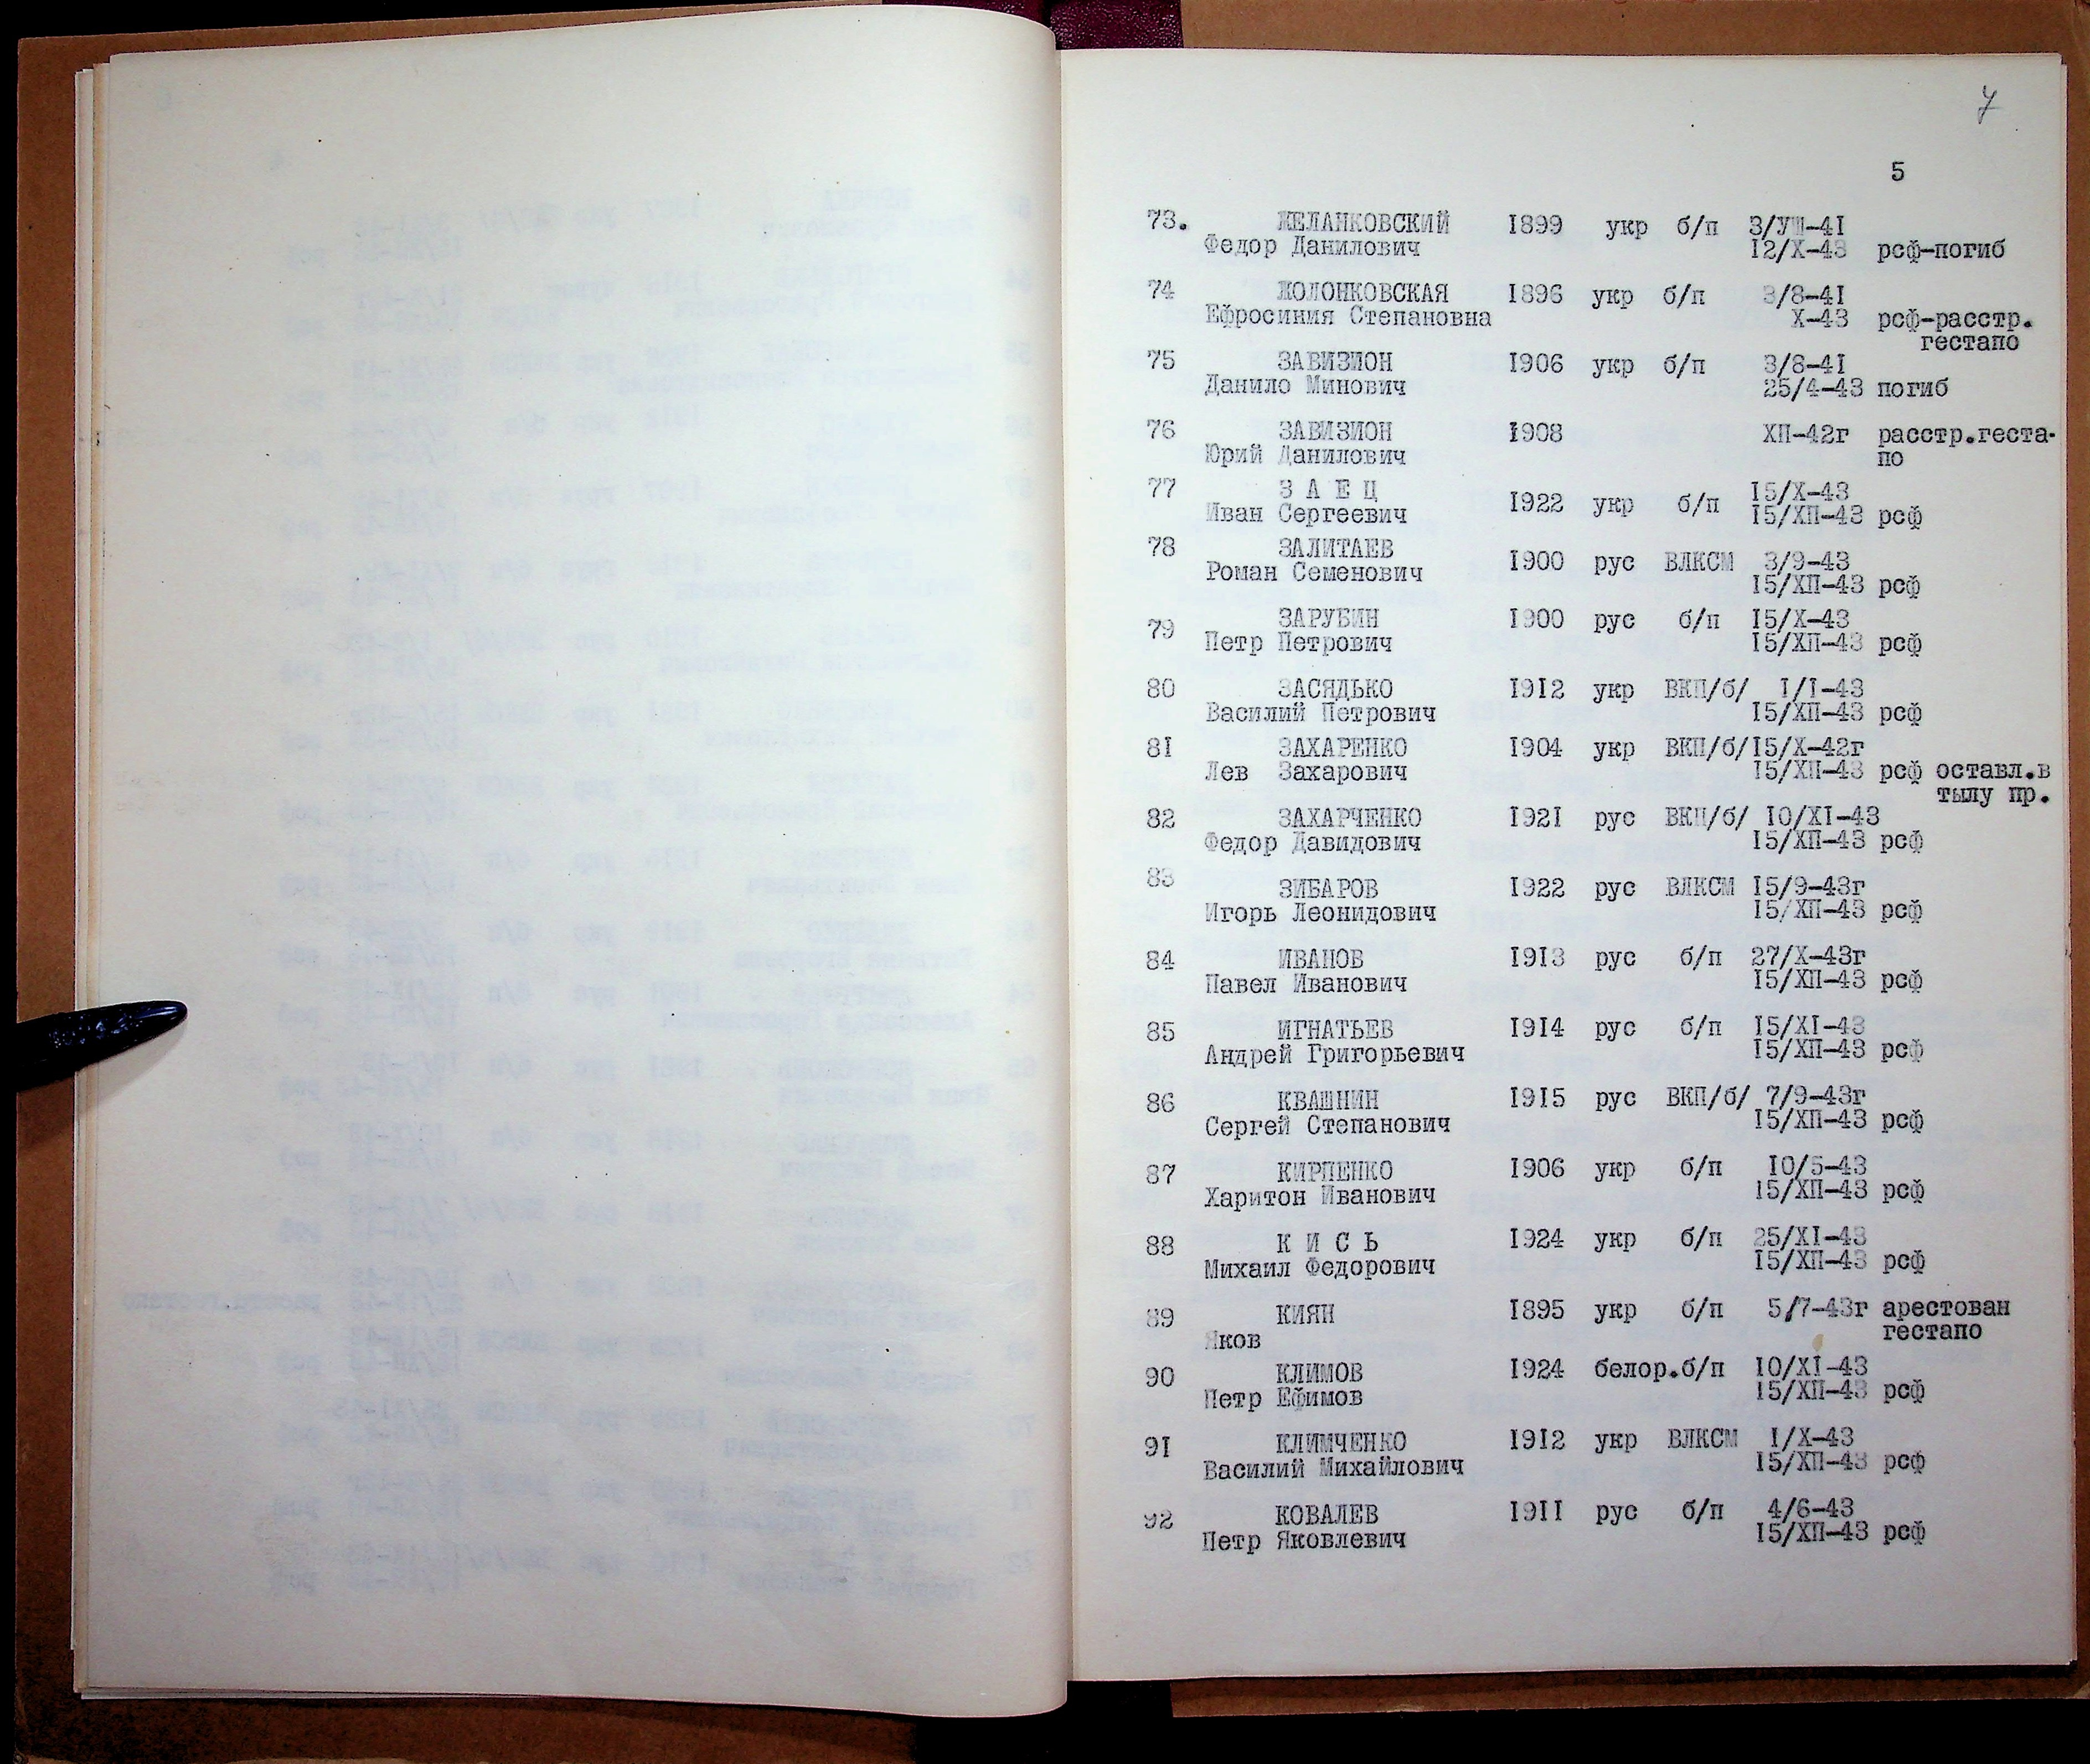 7
5
73. ЖЕЛАНКОВСКИЙ 1899 укр б/п 3/УШ-41
Федор Данилович 12/Х-43 рсф-погиб
74 ЖОЛОНКОВСКАЯ 1896 укр б/п 3/8-41
Ефросиния Степановна Х-43 рсф-расстр.
гестапо
75 ЗАВИЗИОН 1906 укр б/п 3/8-41
Данило Минович 25/4-43 погиб
76 ЗАВИЗИОН 1908 ХП-42г расстр.геста-
Юрий Данилович по
77 З А Е Ц 1922 укр б/п 15/Х-43
Иван Сергеевич 15/ХП-43 рсф
78 ЗАЛИТАЕВ 1900 рус ВЛКСМ 3/9-43
Роман Семенович 15/ХП-43 рсф
79 ЗАРУБИН 1900 рус б/п 15/Х-43
Петр Петрович 15/ХП-43 рсф
80 ЗАСЯДЬКО 1912 укр ВКП/б/ 1/1-43
Василий Петрович 15/ХП-43 рсф
81 ЗАХАРЕНКО 1904 укр ВКП/б/ 15/Х-42г
Лев Захарович 15/ХП-43 рсф оставл.в
тылу пр.
82 ЗАХАРЧЕНКО 1921 рус ВКП/б/ 10/XI-43
Федор Давидович 15/ХП-43 рсф
83 ЗИБАРОВ 1922 рус ВЛКСМ 15/9-43г
Игорь Леонидович 15/ХП-43 рсф
84 ИВАНОВ 1913 рус б/п 27/Х-43г
Павел Иванович 15/ХП-43 рсф
85 ИГНАТЬЕВ 1914 рус б/п 15/XI-43
Андрей Григорьевич 15/ХП-43 рсф
86 КВАШНИН 1915 рус ВКП/б/ 7/9-43г
Сергей Степанович 15/ХП-43 рсф
87 КИРПЕНКО 1906 укр б/п 10/5-43
Харитон Иванович 15/ХП-43 рсф
88 К И С Ь 1924 укр б/п 25/XI-43
Михаил Федорович 15/ХП-43 рсф
89 КИЯН 1895 укр б/п 5/7-43г арестован
Яков гестапо
90 КЛИМОВ 1924 белор.б/п 10/XI-43
Петр Ефимов 15/ХП-43 рсф
91 КЛИМЧЕНКО 1912 укр ВЛКСМ 1/Х-43
Василий Михайлович 15/ХП-43 рсф
92 КОВАЛЕВ 1911 рус б/п 4/6-43
Петр Яковлевич 15/ХП-43 рсф